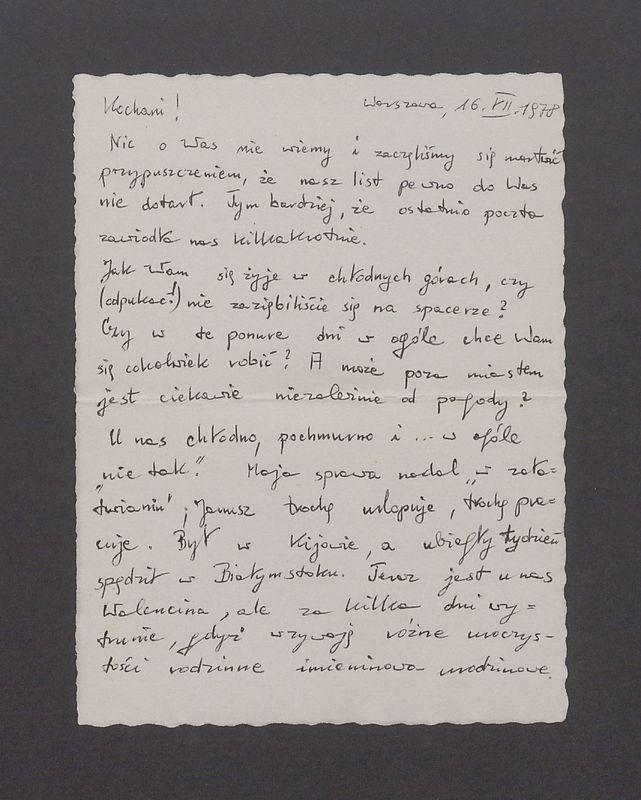 Kochani!
Warszawa, 16.VII.1978
Nic o Was nie wiemy i zaczęliśmy się martwić
przypuszczeniem, że nasz list pewno do Was
nie dotarł. Tym bardziej, że ostatnio poczta
zawiodła nas kilkakrotnie.
Jak Wam się żyje w chłodnych górach, czy
(odpukać!) nie zaziębiliście się na spacerze?
Czy w te ponure dni w ogóle chce Wam
się cokolwiek robić? A może poza miastem
jest ciekawie niezależnie od pogody?
U nas chłodno, pochmurno i ... w ogóle
"nie tak." Moja sprawa nadal "w zała=
twianiu"; Janusz trochę urlopuje, trochę pra=
cuje. Był w Kijowie, a ubiegły tydzień
spędził w Białymstoku. Teraz jest u nas
Walencina, ale za kilka dni wy=
frunie, gdyż wzywają różne uroczys-
tości rodzinne imieninowo urodzinowe.